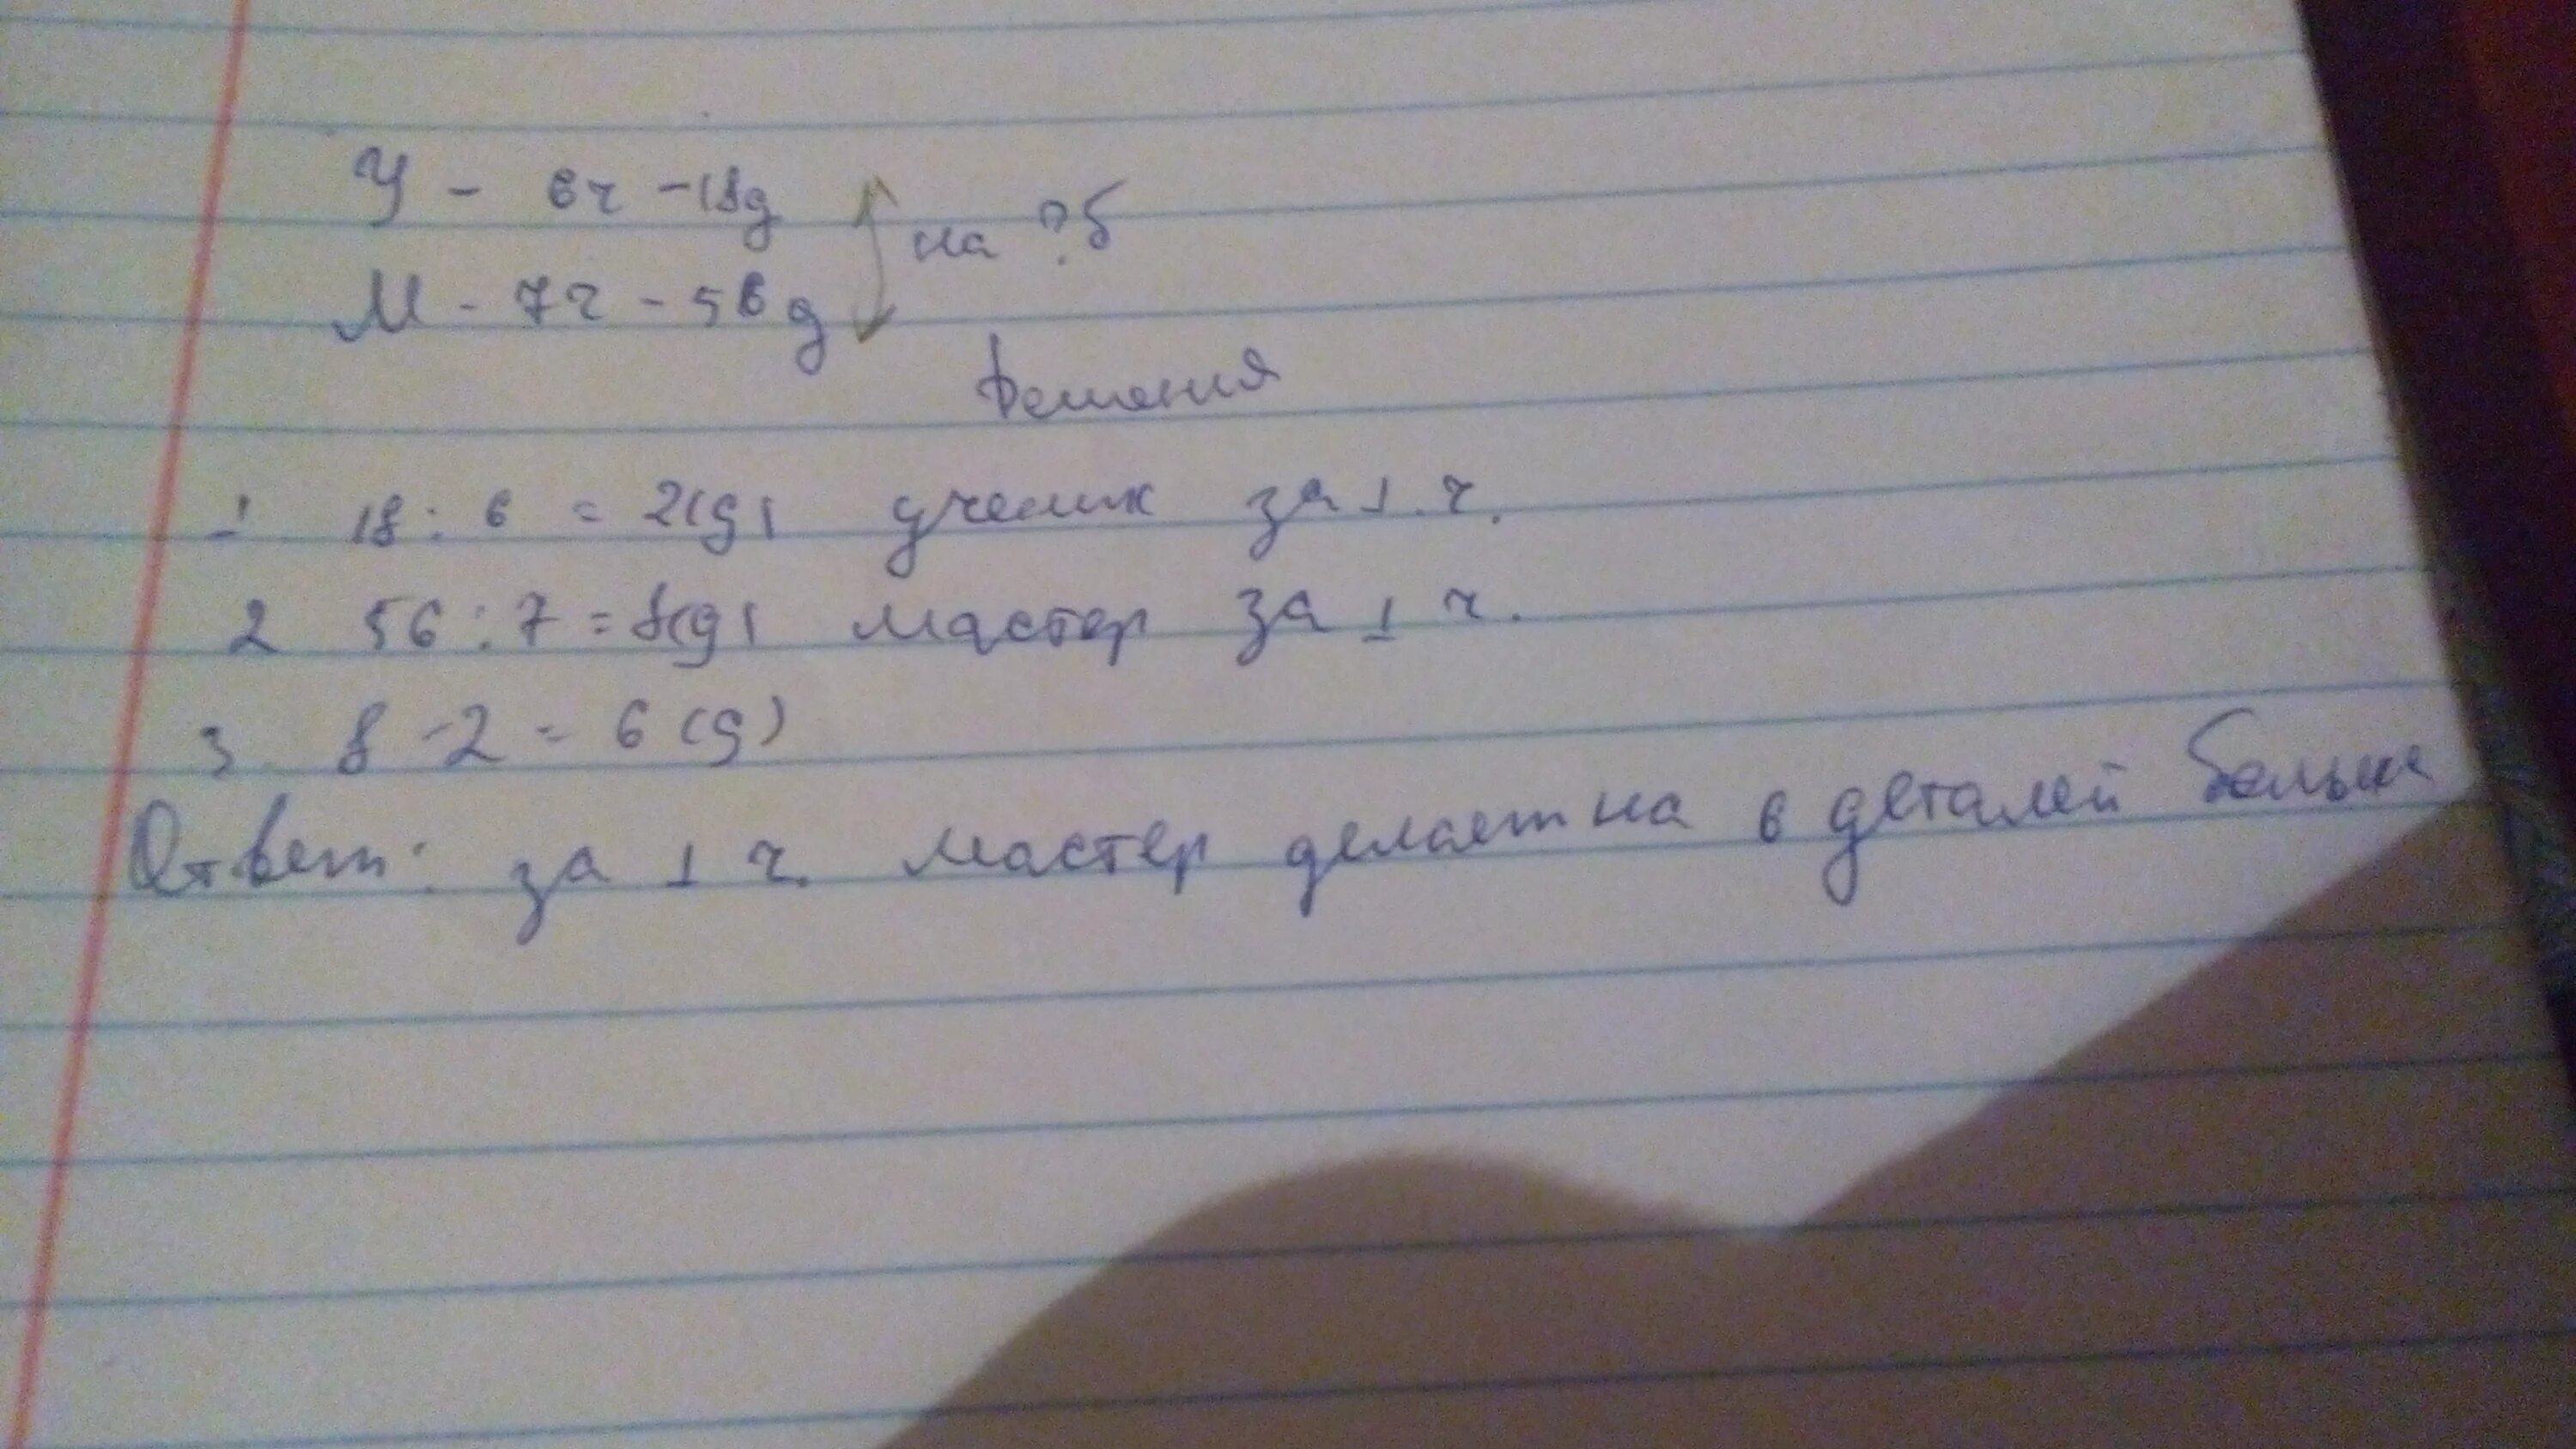 У - 6ч - 18д
на ? б
М - 7ч - 56д
Решения
1 18 : 6 = 2(д) ученик за 1 ч.
2 56 : 7 = 8(д) мастер за 1 ч.
3. 8 - 2 = 6 (д)
Ответ: за 1 ч. мастер делает на 6 деталей больше